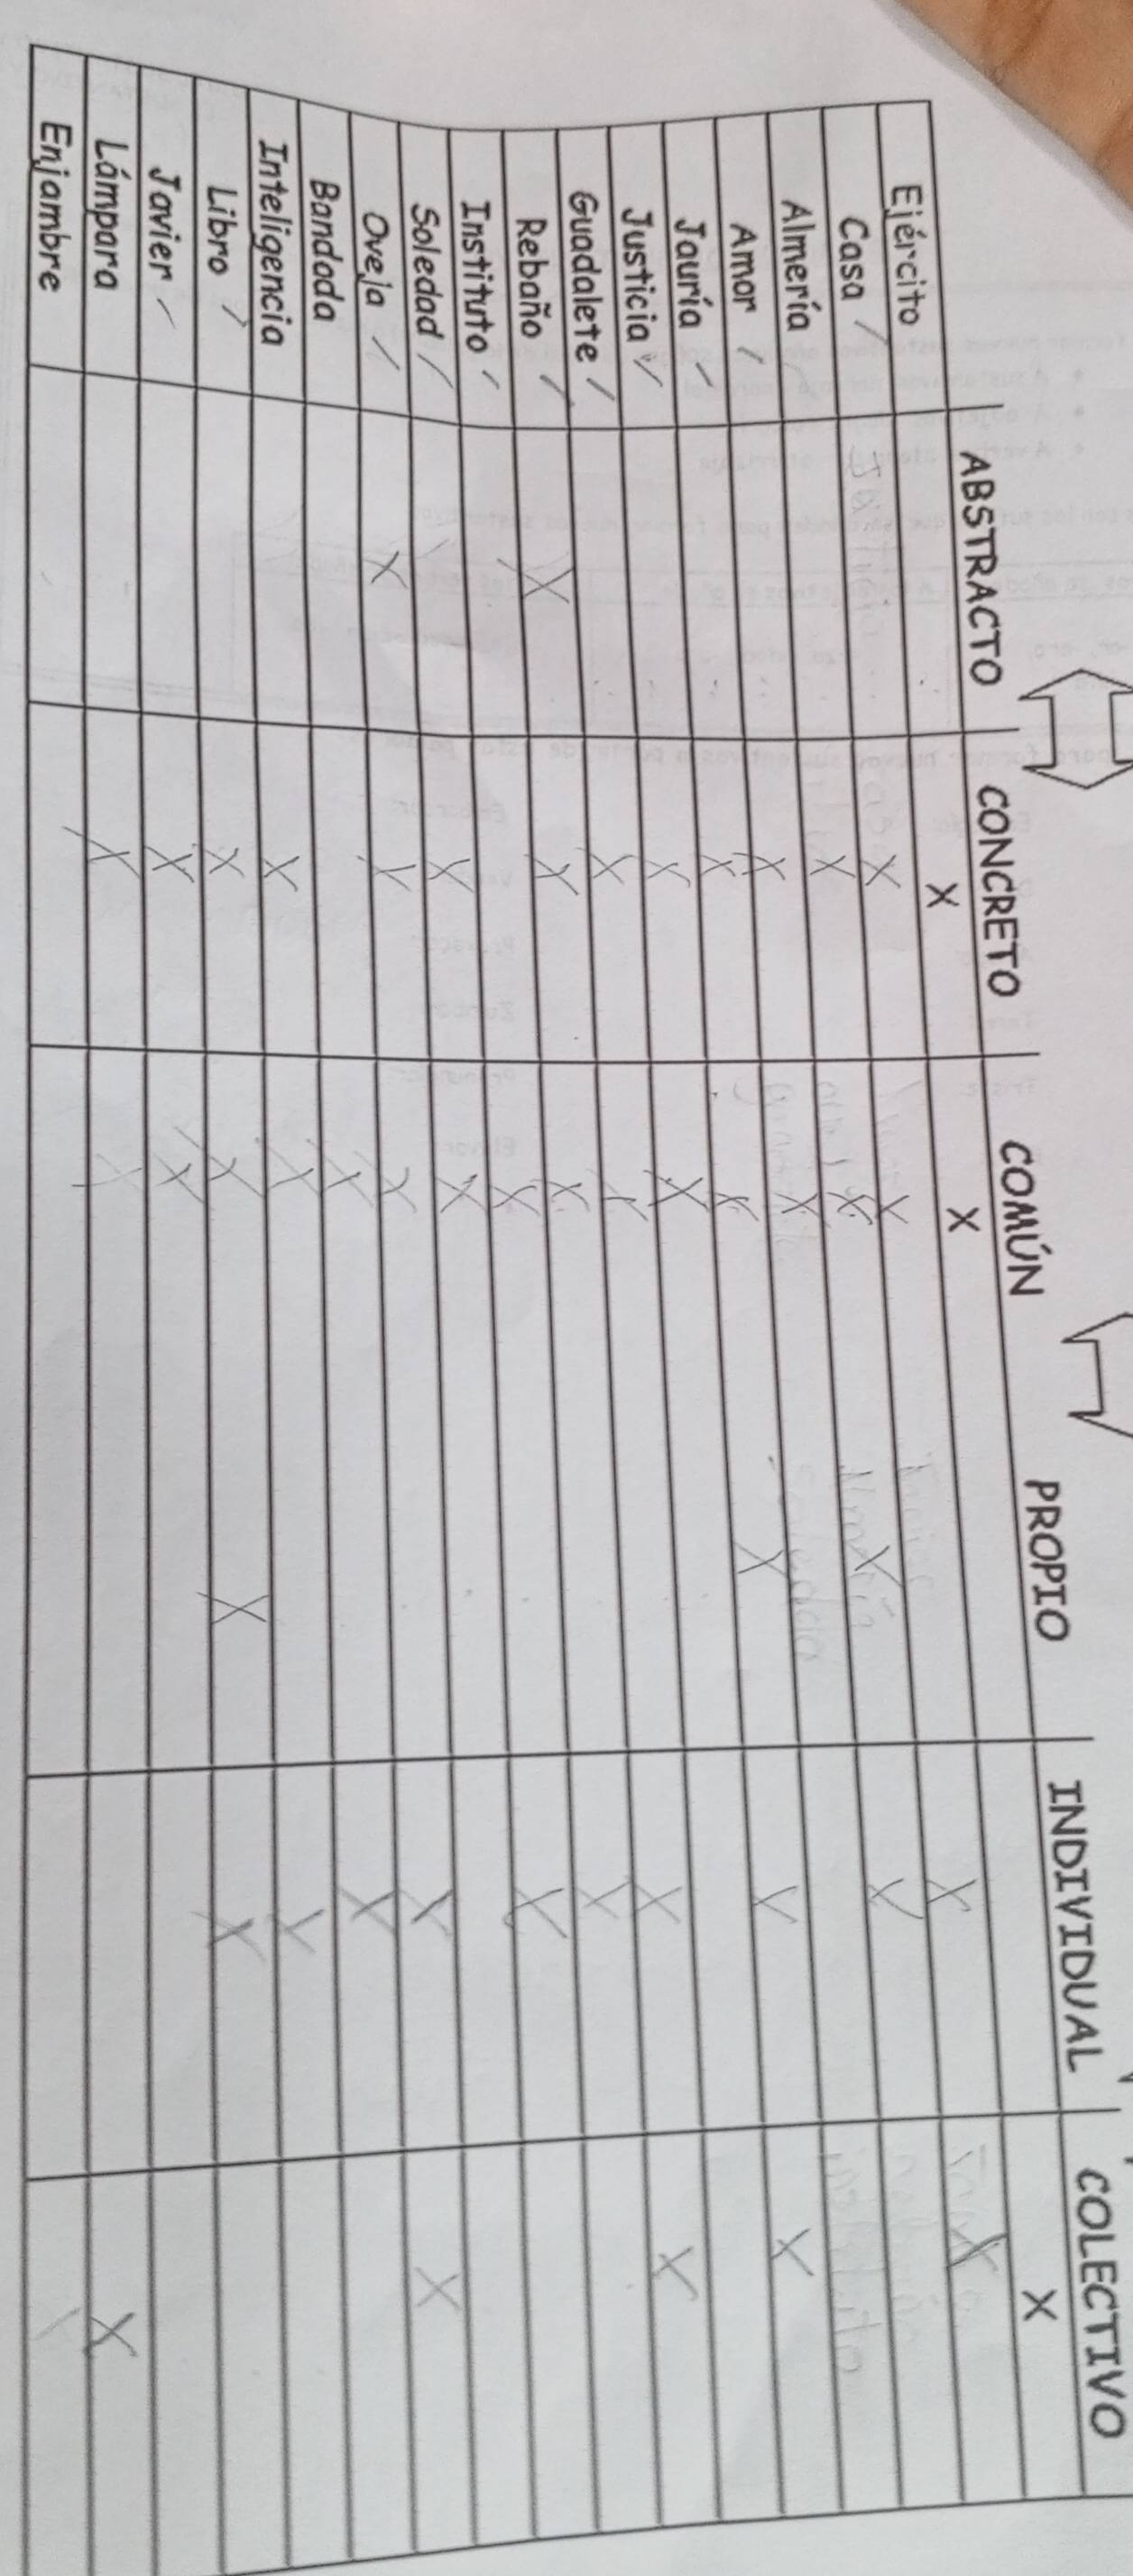 ABSTRACTO CONCRETO COMÚN PROPIO INDIVIDUAL COLECTIVO
Ejército X X X
Casa
Almería
Amor
Jauría
Justicia
Guadalete
Rebaño
Instituto
Soledad
Oveja
Bandada
Inteligencia
Libro
Javier
Lámpara
Enjambre